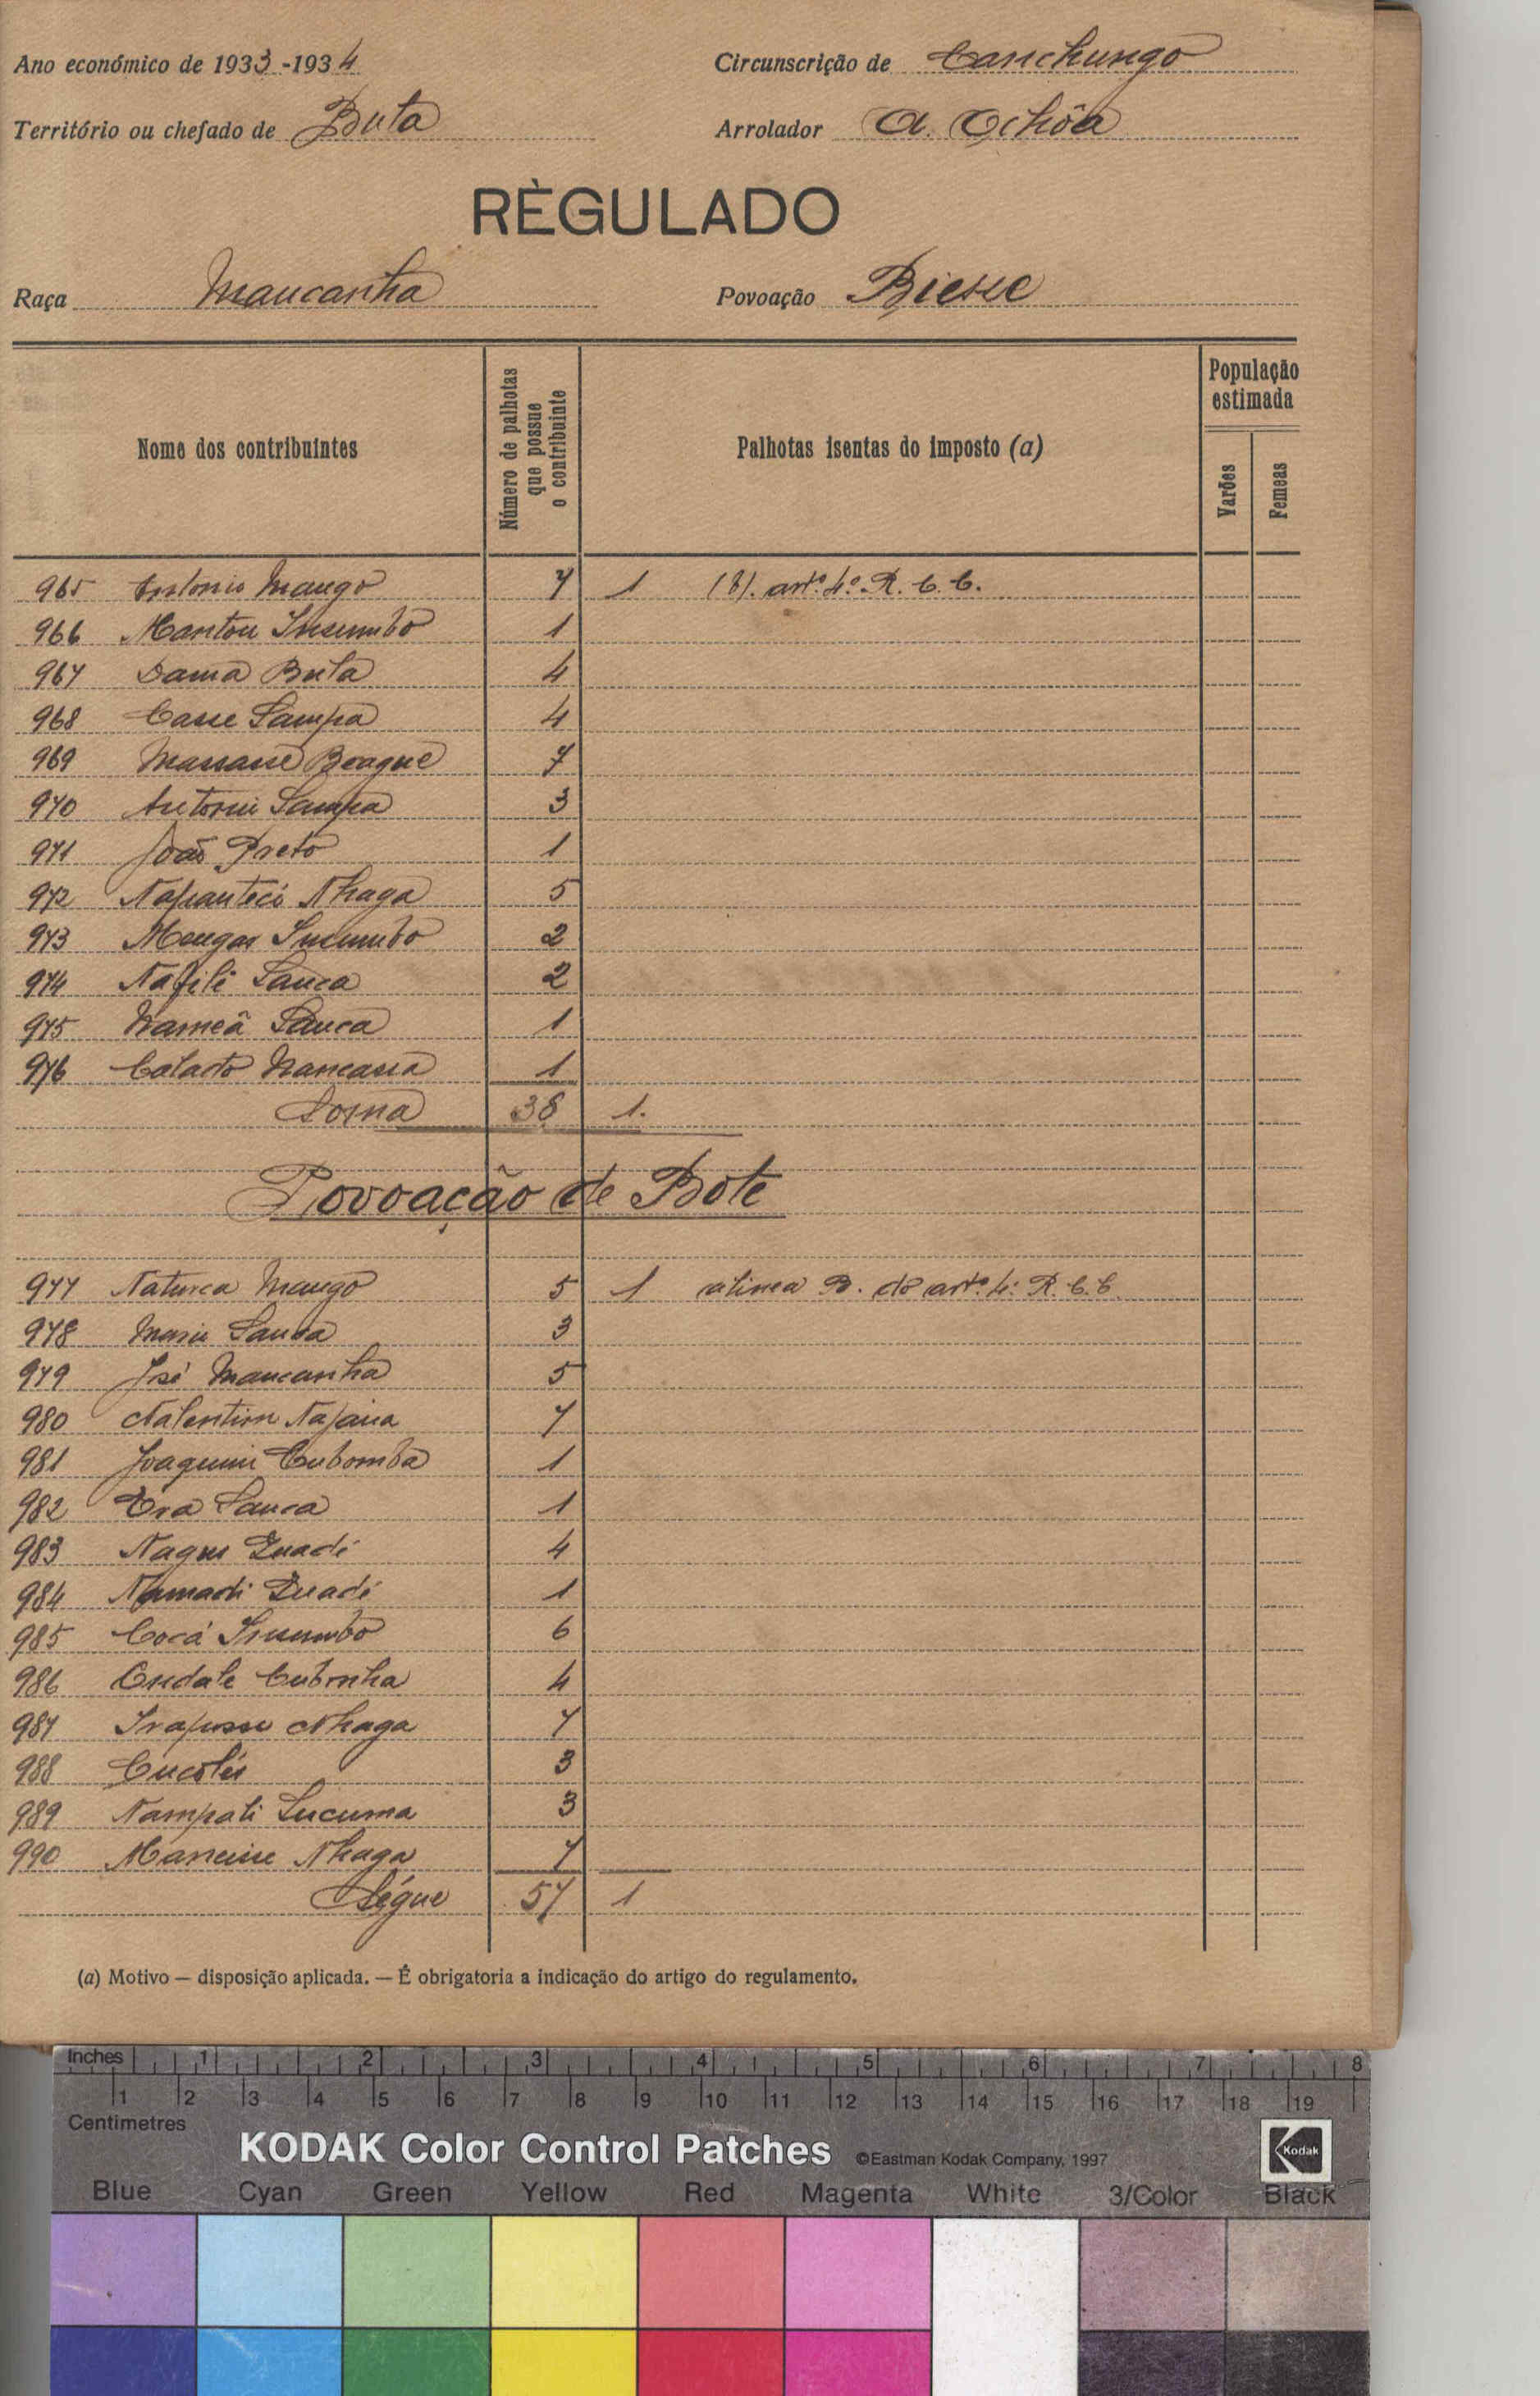 Ano económico de 1933-1934
Circunscrição de Canchungo
Território ou chefado de Buta
Arrolador A. Ochôa
RÈGULADO
Raça Mancanha
Povoação
Nome dos contribuintes
Número de palhotas que possue o contribuinte
Palhotas isentas do imposto (a)
População estimada
Varões
Femeas
965 Antonio Mango 7 1 (B). artº. 4º. R. C. C.
966 Insumbo 1
967 Dama Bula 4
968 Casse Sampa 4
969 7
970 Antonio Sampa 3
971 João Preto 1
972 Nhaga 5
973 Insumbo 2
974 Nafili Sanca 2
975 Nameâ Sanca 1
976 1
Soma 38 1.
Povoação de Bote
977 Naturca Mango 5 1 alinea B. do artº. 4º. R. C. C.
978 Sanca 3
979 José Mancanha 5
980 7
981 Joaquim 1
982 Sanca 1
983 4
984 Namadi 1
985 Cocá Insumbo 6
986 4
987 Nhaga 7
988 3
989 Nampali 3
990 Nhaga 7
Ségue 57 1
(a) Motivo — disposição aplicada. — É obrigatoria a indicação do artigo do regulamento.
Inches 1 2 3 4 5 6 7 8
1 2 3 4 5 6 7 8 9 10 11 12 13 14 15 16 17 18 19
Centimetres
KODAK Color Control Patches ©Eastman Kodak Company, 1997
Kodak
Blue Cyan Green Yellow Red Magenta White 3/Color Black